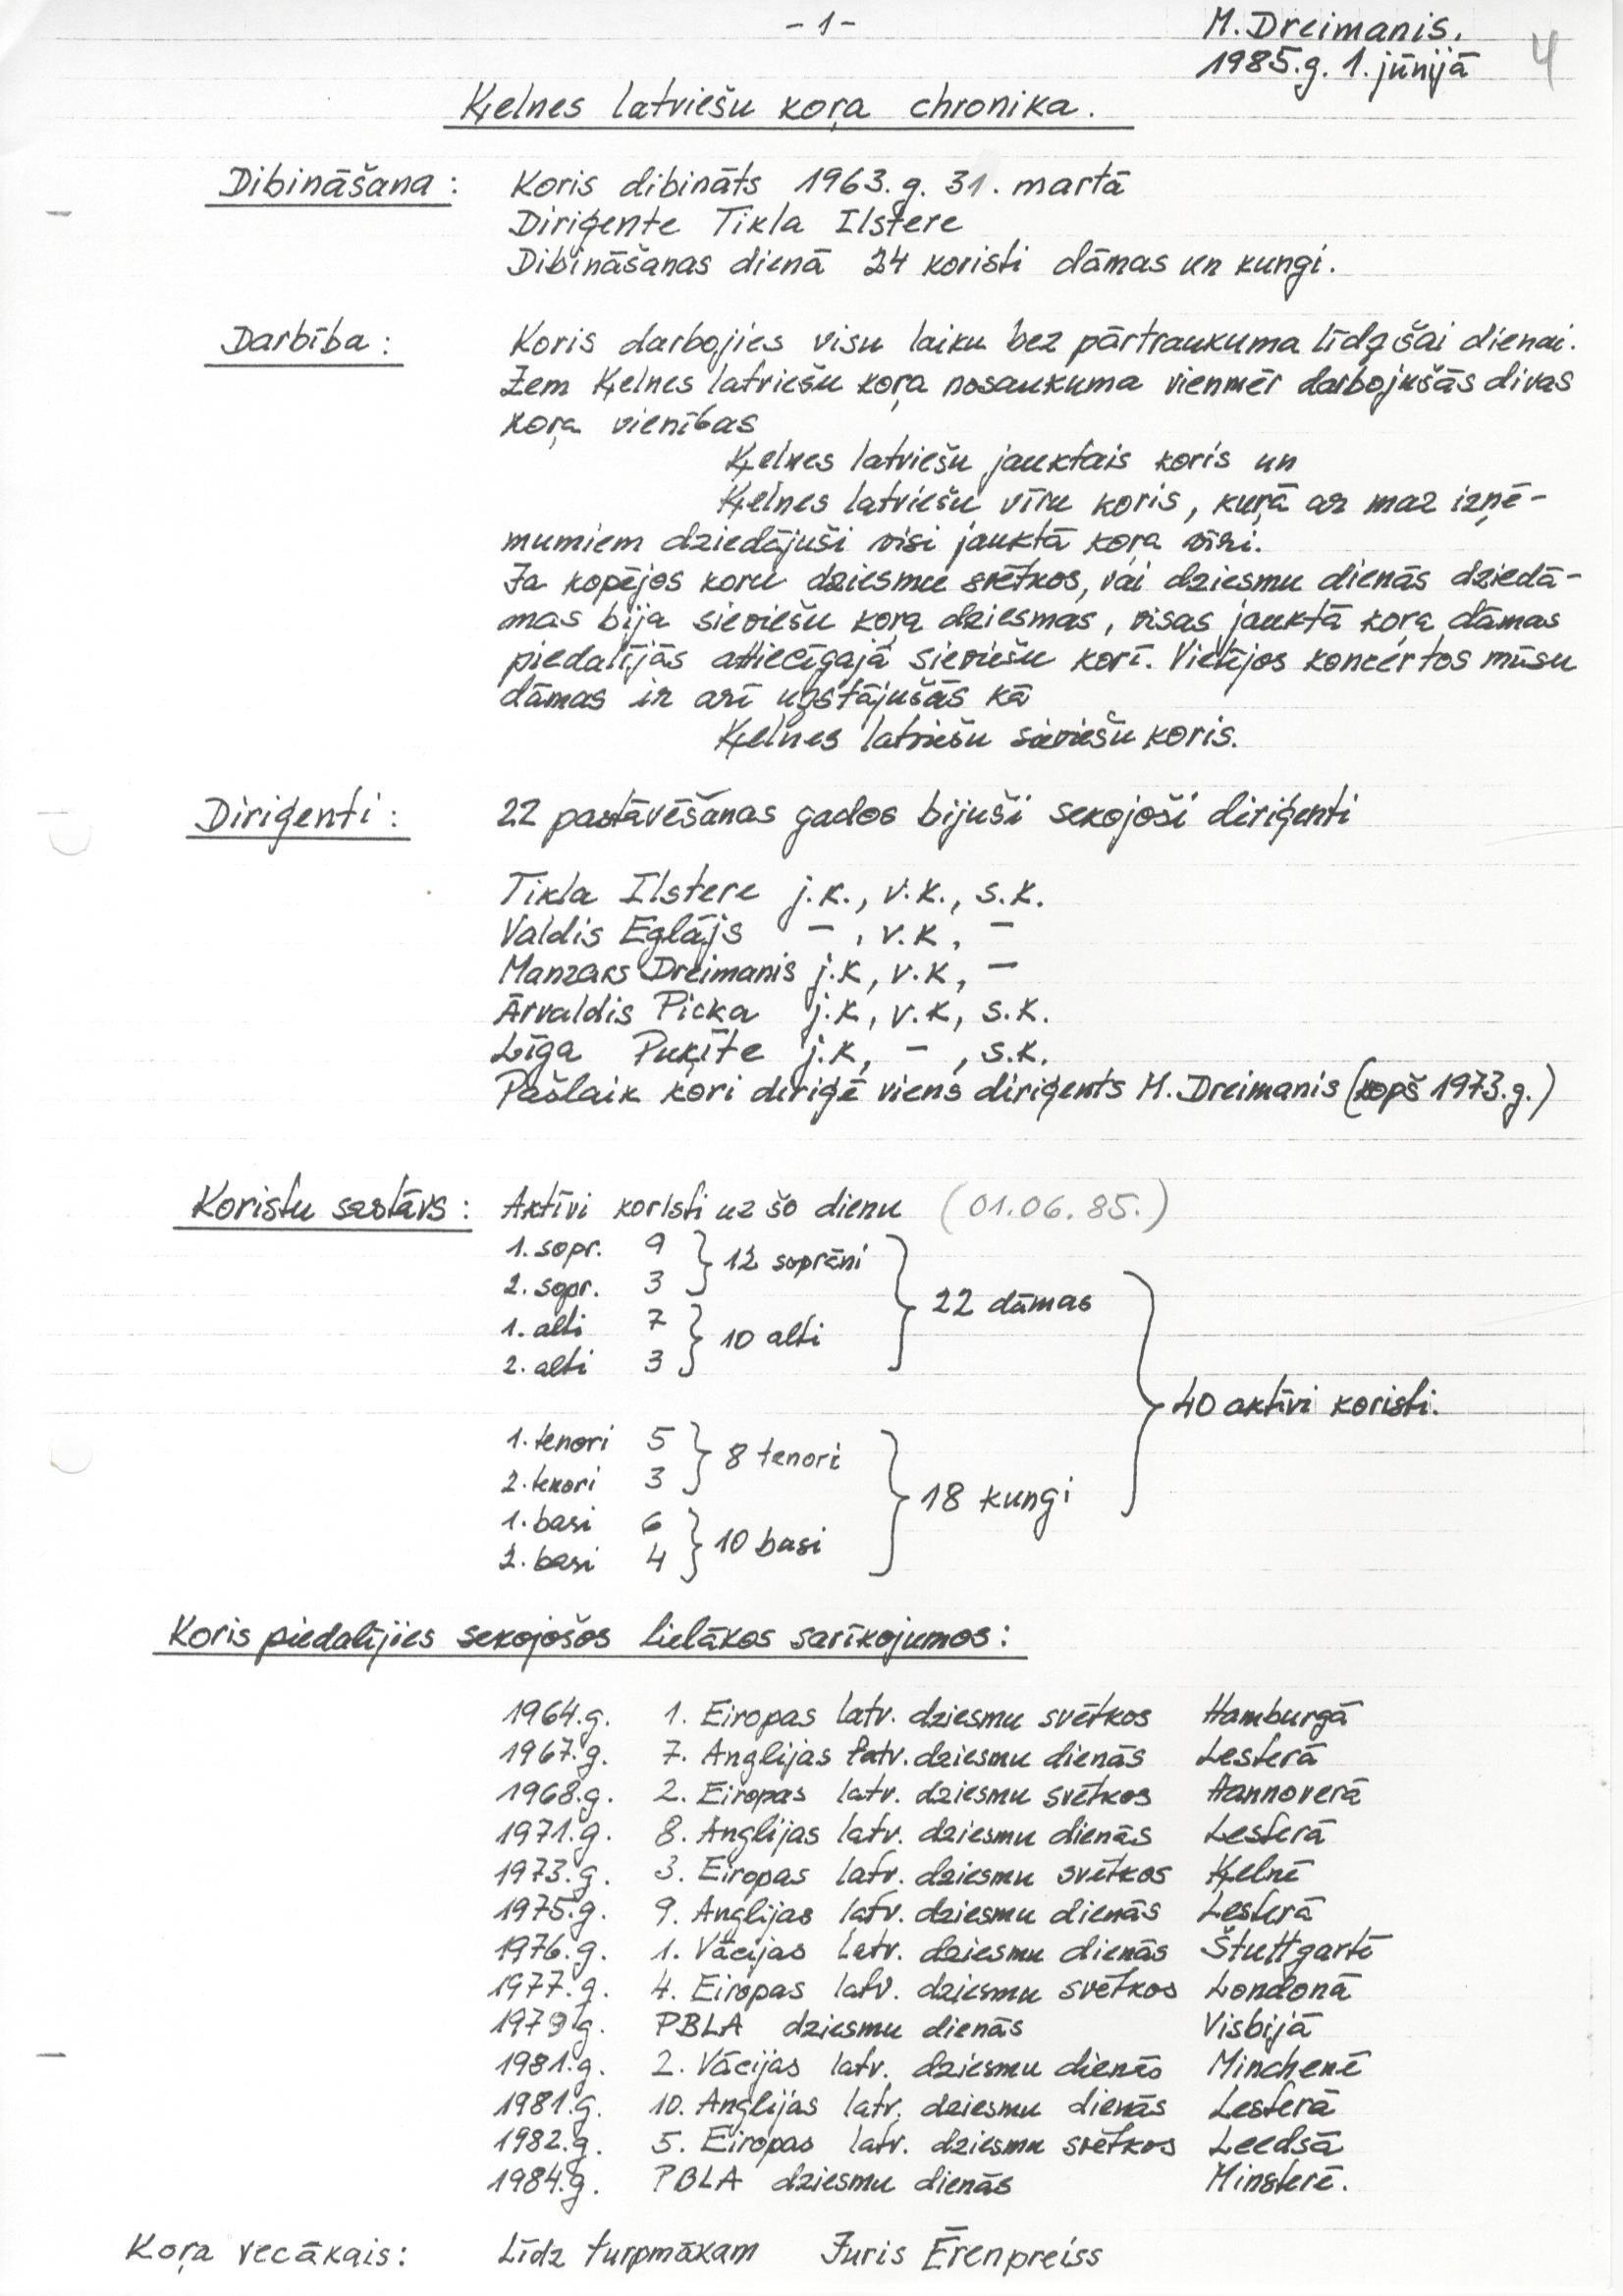 - 1 -
M. Dreimanis.
1985.g. 1. jūnijā
4
Ķelnes latviešu koŗa chronika.
Dibināšana : Koris dibināts 1963. g. 31. martā
Diriģente Tikla Ilstere
Dibināšanas dienā 24 koristi dāmas un kungi.
Darbība : Koris darbojies visu laiku bez pārtraukuma līdz šai dienai.
Zem Ķelnes latviešu koŗa nosaukuma vienmēr darbojušās divas
koŗa vienības
Ķelnes latviešu jauktais koris un
Ķelnes latviešu vīru koris, kuŗā ar maz izņē-
mumiem dziedājuši visi jauktā koŗa vīri.
Ja kopējos koru dziesmu svētkos, vai dziesmu dienās dziedā-
mas bija sieviešu koŗa dziesmas, visas jauktā koŗa dāmas
piedalījās attiecīgajā sieviešu korī. Vietējos koncertos mūsu
dāmas ir arī uzstājušās kā
Ķelnes latviešu sieviešu koris.
Diriģenti : 22 pastāvēšanas gados bijuši sekojoši diriģenti
Tikla Ilstere j.k., v.k., s.k.
Valdis Eglājs - , v.k, -
Manzars Dreimanis j.k, v.k, -
Ārvaldis Picka j.k, v.k, s.k.
Līga Puķīte j.k, - , s.k.
Pašlaik kori diriģē viens diriģents M. Dreimanis (kopš 1973.g.)
Koristu sastāvs : Aktīvi koristi uz šo dienu (01.06.85.)
1. sopr. 9 } 12 soprāni
2. sopr. 3
22 dāmas
1. alti 7 } 10 alti
2. alti 3
40 aktīvi koristi.
1. tenori 5 } 8 tenori
2. tenori 3
18 kungi
1. basi 6 } 10 basi
2. basi 4
Koris piedalījies sekojošos lielākos sarīkojumos :
1964.g. 1. Eiropas latv. dziesmu svētkos Hamburgā
1967.g. 7. Anglijas latv. dziesmu dienās Lesterā
1968.g. 2. Eiropas latv. dziesmu svētkos Hannoverā
1971.g. 8. Anglijas latv. dziesmu dienās Lesterā
1973.g. 3. Eiropas latv. dziesmu svētkos Ķelnē
1975.g. 9. Anglijas latv. dziesmu dienās Lesterā
1976.g. 1. Vācijas latv. dziesmu dienās Štuttgartē
1977.g. 4. Eiropas latv. dziesmu svētkos Londonā
1979g. PBLA dziesmu dienās Visbijā
1981.g. 2. Vācijas latv. dziesmu dienās Minchenē
1981.g. 10. Anglijas latv. dziesmu dienās Lesterā
1982.g. 5. Eiropas latv. dziesmu svētkos Leedsā
1984.g. PBLA dziesmu dienās Minsterē.
Koŗa vecākais : Līdz turpmākam Juris Ērenpreiss